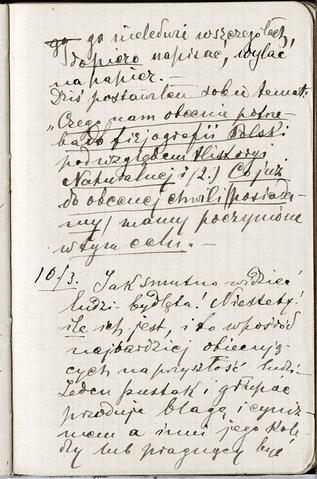 go go meledwić w szczegółach,
dopiero napisać, wylać
na papier. —
Dziś postawiłem sobie temat:
„Czego nam obecnie potrze-
ba do fizjografii Polski
pod względem Historyi
Naturalnej i (2.) Co już
do obecnej chwili (posiada-
my) mamy poczynione
w tym celu. —
10/3. Jak smutno widzieć
ludzi bydlęta! Niestety!
ile ich jest, i to wpośród
najbardziej obiecują-
cych na przyszłość ludzi.
Jeden pustak i
przoduje blagą i cyniz-
mem a inni jego
lub pragnący być